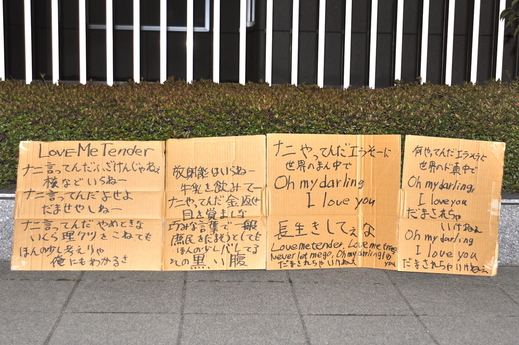 LOVE Me Tender
ナニ言ってんだーふざけんじゃねぇ
核などいらねー
ナニ言ってんだーよせよ
だませやしねー
ナニ言ってんだー やめときな
いくら理クツをこねても
ほんの少し考えりゃ
俺にもわかるさ
放射能はいらねー
牛乳を飲みてー
ナニやってんだー 金返せ
目を覚ましな
巧みな言葉で一般
庶民をだまそうとしても
ほんの少しバレてる
その黒い腹
ナニやってんだエラそーに
世界のまん中で
Oh my darling
I love you
長生きしてぇな
Love me tender, Love me true,
Never let me go, Oh my darling I love you
だまされちゃいけねぇ
何やってんだエラそうに
世界のド真中で
Oh my darling,
I love you
だまされちゃ
いけねぇ
Oh my darling
I love you
だまされちゃいけねぇ